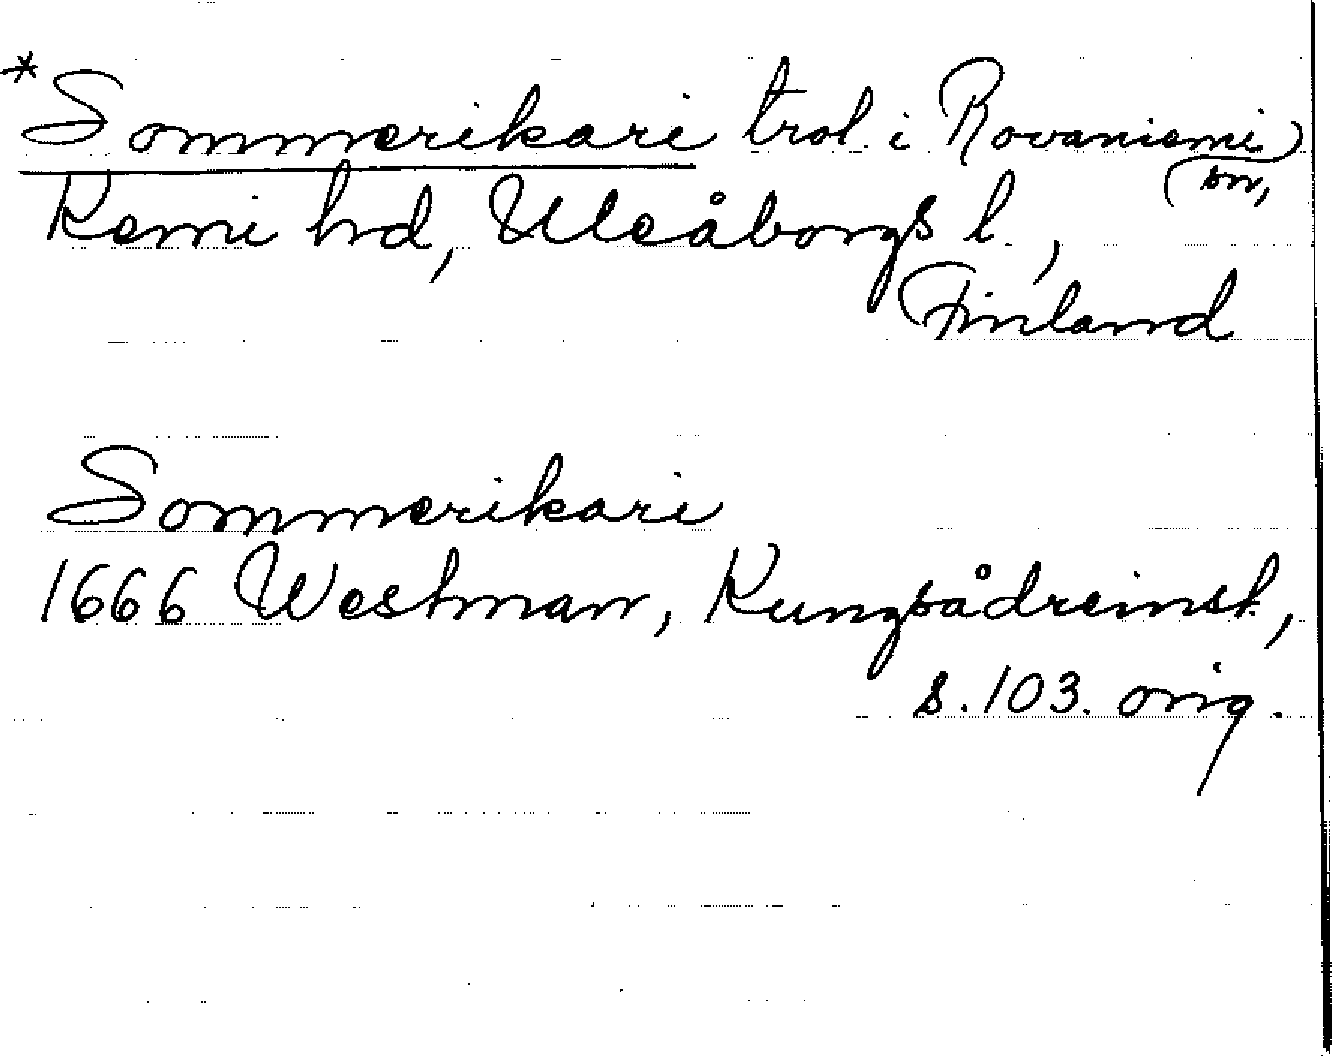 *Sommerikari trol. i Rovaniemi
sn,
Kemi hrd, Uleåborgs l.,
Finland
Sommerikari
1666 Westman, Kungsådreinsk,
s. 103. orig.